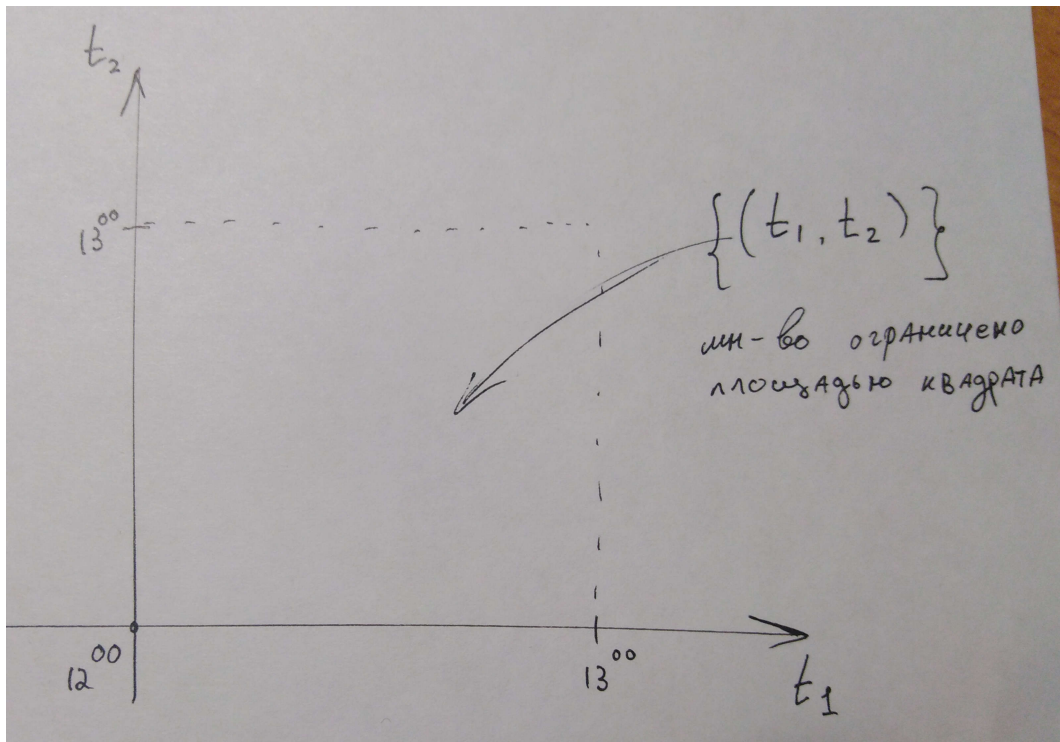 t₂
13⁰⁰
{(t₁, t₂)}
мн-во ограничено
площадью квадрата
12⁰⁰
13⁰⁰
t₁